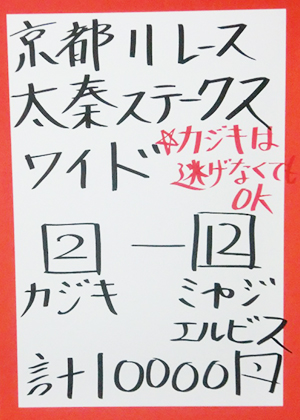 京都11レース
太秦ステークス
ワイド
☆カジキは
逃げなくても
OK
2 — 12
カジキ
ミヤジ
エルビス
計10000円